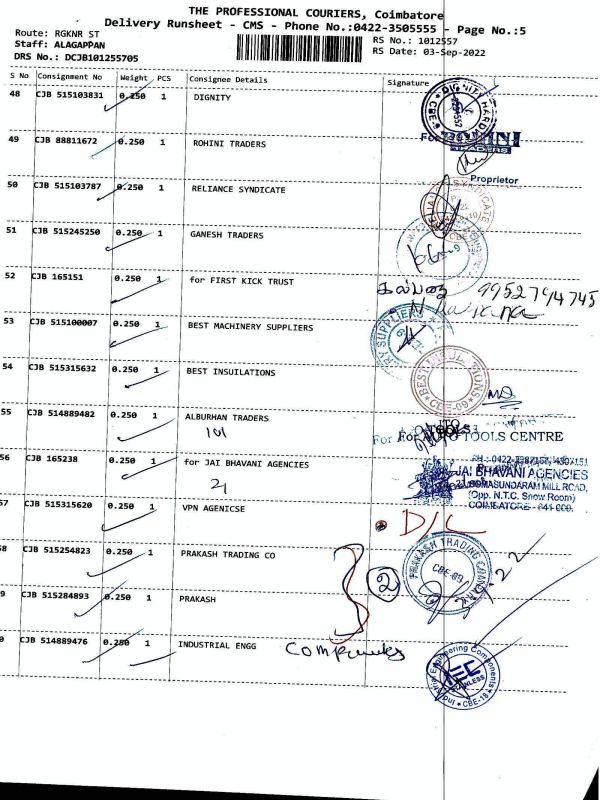 THE PROFESSIONAL COURIERS, Coimbatore
Delivery Runsheet - CMS - Phone No.:0422-3505555 - Page No.:5
Route: RGKNR ST
RS No.: 1012557
Staff: ALAGAPPAN
RS Date: 03-Sep-2022
DRS No.: DCJB101255705
S No Consignment No Weight PCS Consignee Details Signature
48 CJB 515103831 0.250 1 DIGNITY
49 CJB 88811672 0.250 1 ROHINI TRADERS
Proprietor
50 CJB 515103787 0.250 1 RELIANCE SYNDICATE
51 CJB 515245250 0.250 1 GANESH TRADERS
52 CJB 165151 0.250 1 for FIRST KICK TRUST
9952794745
53 CJB 515100007 0.250 1 BEST MACHINERY SUPPLIERS
54 CJB 515315632 0.250 1 BEST INSUILATIONS
CBE-09
55 CJB 514889482 0.250 1 ALBURHAN TRADERS
101
For AUTO TOOLS CENTRE
56 CJB 165238 0.250 1 for JAI BHAVANI AGENCIES
21
JAI BHAVANI AGENCIES
SOMASUNDARAM MILL ROAD,
(Opp. N.T.C. Snow Room)
COIMBATORE - 641 009.
57 CJB 515315620 0.250 1 VPN AGENICSE
D/L
58 CJB 515254823 0.250 1 PRAKASH TRADING CO
2
PRAKASH TRADING COMPANY
CBE-09
9 CJB 515284893 0.250 1 PRAKASH
0 CJB 514889476 0.250 1 INDUSTRIAL ENGG
Engineering Components
IEC
STAINLESS
CBE-18